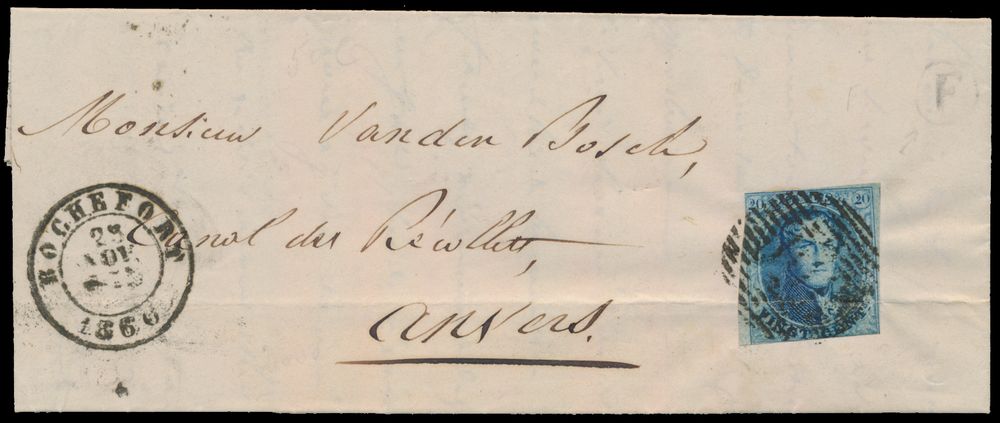 Monsieur Vanden Bosch,
Canal des Récollets,
Anvers.
ROCHEFORT
1860
20 20
F